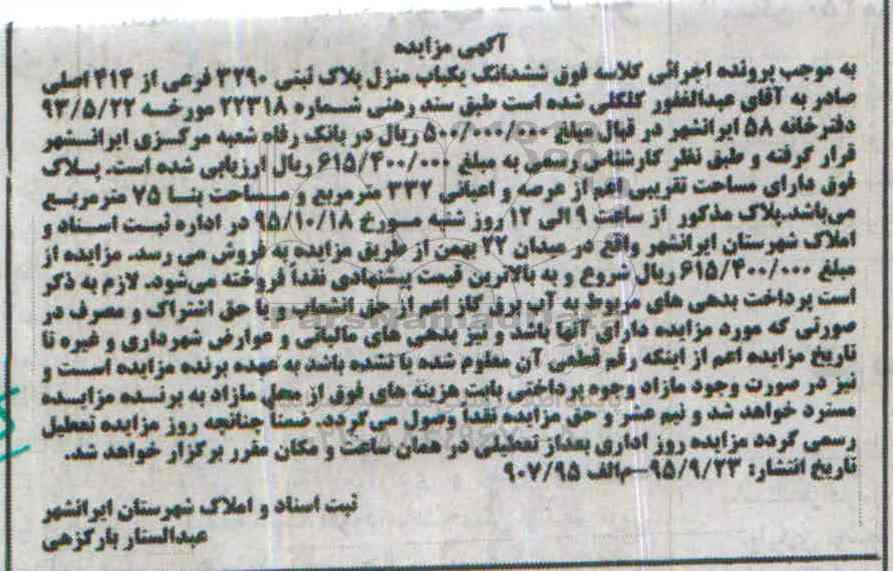 آگهی مزایده
به موجب پرونده اجرائی کلاسه فوق ششدانگ یکباب منزل پلاک ثبتی ۳۲۹۰ فرعی از ۴۱۴ اصلی
صادر به آقای عبدالغفور کلکلی شده است طبق سند رهنی شماره ۲۲۳۱۸ مورخه ۹۳/۵/۲۲
دفترخانه ۵۸ ایرانشهر در قبال مبلغ ۵۰۰/۰۰۰/۰۰۰ ریال در بانک رفاه شعبه مرکزی ایرانشهر
قرار گرفته و طبق نظر کارشناس رسمی به مبلغ ۶۱۵/۴۰۰/۰۰۰ ریال ارزیابی شده است. پلاک
فوق دارای مساحت تقریبی اعم از عرصه و اعیانی ۳۳۲ مترمربع و مساحت بنا ۷۵ مترمربع
می‌باشد.پلاک مذکور از ساعت ۹ الی ۱۲ روز شنبه مورخ ۹۵/۱۰/۱۸ در اداره ثبت اسناد و
املاک شهرستان ایرانشهر واقع در میدان ۲۲ بهمن از طریق مزایده به فروش می رسد. مزایده از
مبلغ ۶۱۵/۴۰۰/۰۰۰ ریال شروع و به بالاترین قیمت پیشنهادی نقداً فروخته می‌شود. لازم به ذکر
است پرداخت بدهی های مربوط به آب برق گاز اعم از حق انشعاب و یا حق اشتراک و مصرف در
صورتی که مورد مزایده دارای آنها باشد و نیز بدهی های مالیاتی و عوارض شهرداری و غیره تا
تاریخ مزایده اعم از اینکه رقم قطعی آن معلوم شده یا نشده باشد به عهده برنده مزایده است و
نیز در صورت وجود مازاد وجوه پرداختی بابت هزینه های فوق از محل مازاد به برنده مزایده
مسترد خواهد شد و نیم عشر و حق مزایده نقداً وصول می گردد. ضمناً چنانچه روز مزایده تعطیل
رسمی گردد مزایده روز اداری بعداز تعطیلی در همان ساعت و مکان مقرر برگزار خواهد شد.
تاریخ انتشار: ۹۵/۹/۲۳–م‌الف ۹۰۷/۹۵
ثبت اسناد و املاک شهرستان ایرانشهر
عبدالستار بارکزهی
ParsNamadData